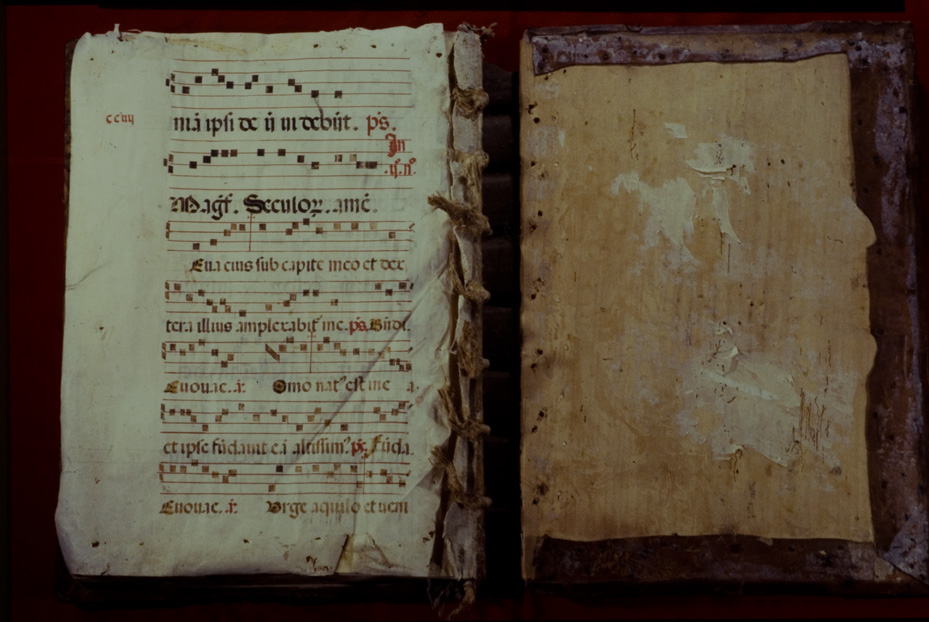 cciiij
ma ipsi de ii iii debūt. ps.
In
.ij. n̊.
Magf̄. Seculoꝝ. amē.
Eua eius sub capite meo et dex
tera illius amplexabit᷑ me. ps.
Euouae. a. Omo nat᷑ est in e a.
et ipse fūdauit eā altissim᷒. ps. Fūda.
Euouae. a. Urge aquilo et ueni